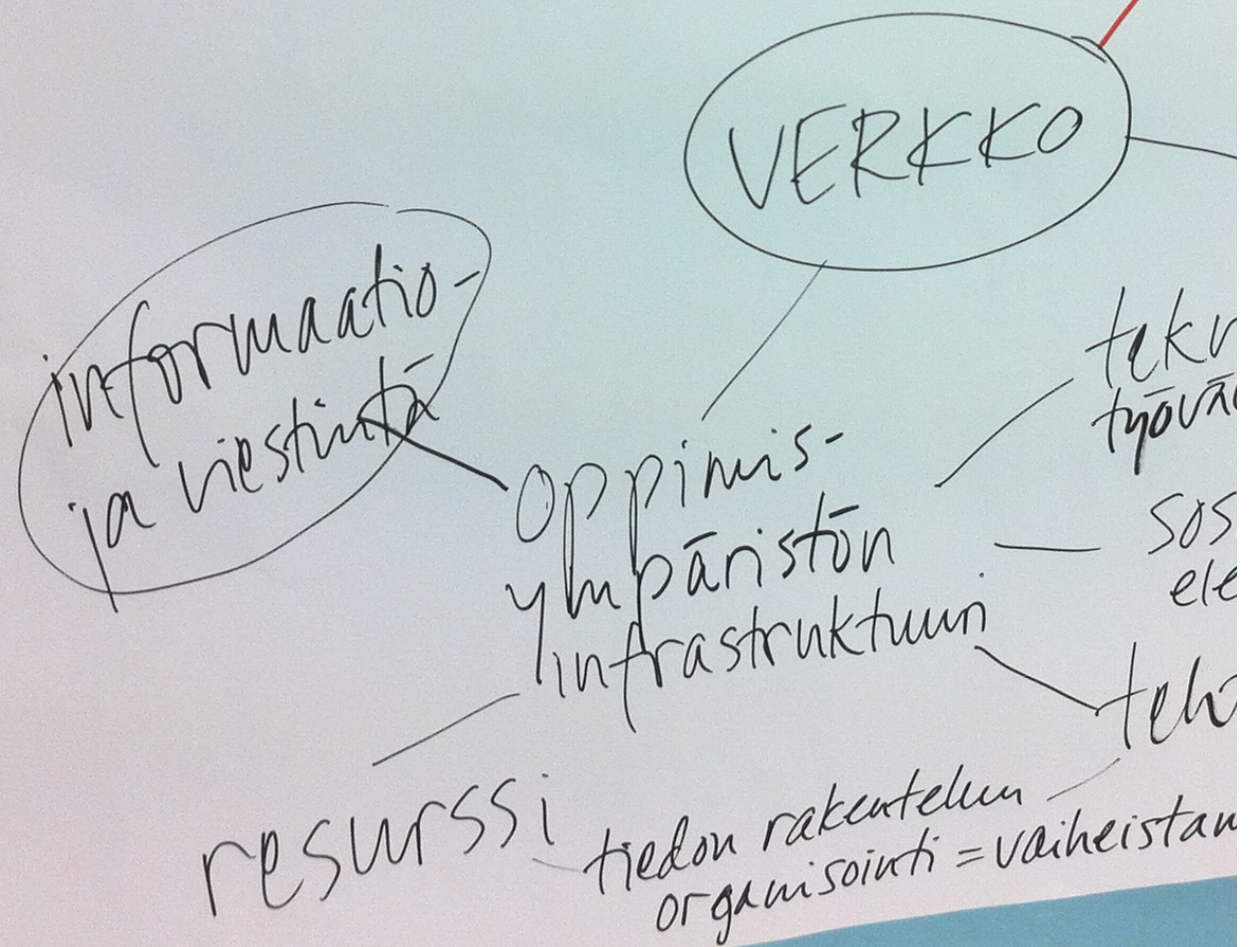 VERKKO
informaatio-
ja viestintä
oppimis-
ympäristön
infrastruktuuri
tekn
työvä
sos
ele
teh
resurssi
tiedon rakentelun
organisointi = vaiheistam